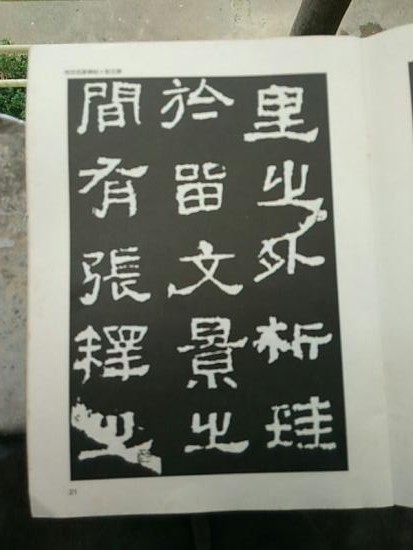 里之外析珪
於留文景之
間有張釋之
21